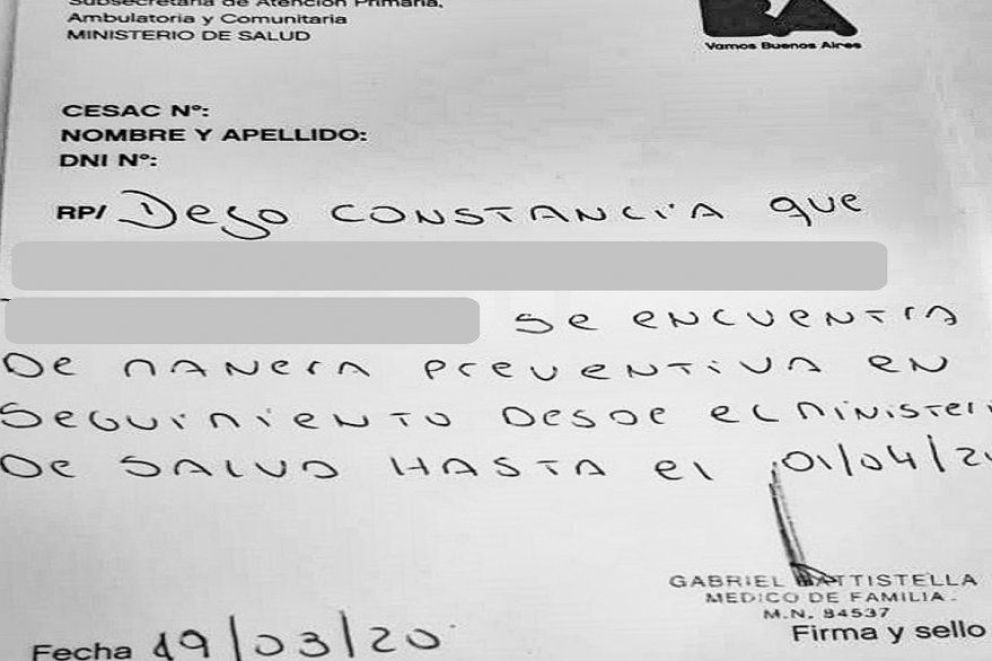 Subsecretaría de Atención Primaria,
Ambulatoria y Comunitaria
MINISTERIO DE SALUD
BA
Vamos Buenos Aires
CESAC Nº:
NOMBRE Y APELLIDO:
DNI Nº:
RP/ Dejo CONSTANCIA que
se eNCUeNTrA
De MANerA PreVeNTiVA eN
SeGUiMieNTO DesDe eL MiNiSTeri
De SALUD HASTA el 01/04/2
GABRIEL BATTISTELLA
MEDICO DE FAMILIA.
M.N. 84537
Firma y sello
Fecha 19/03/20